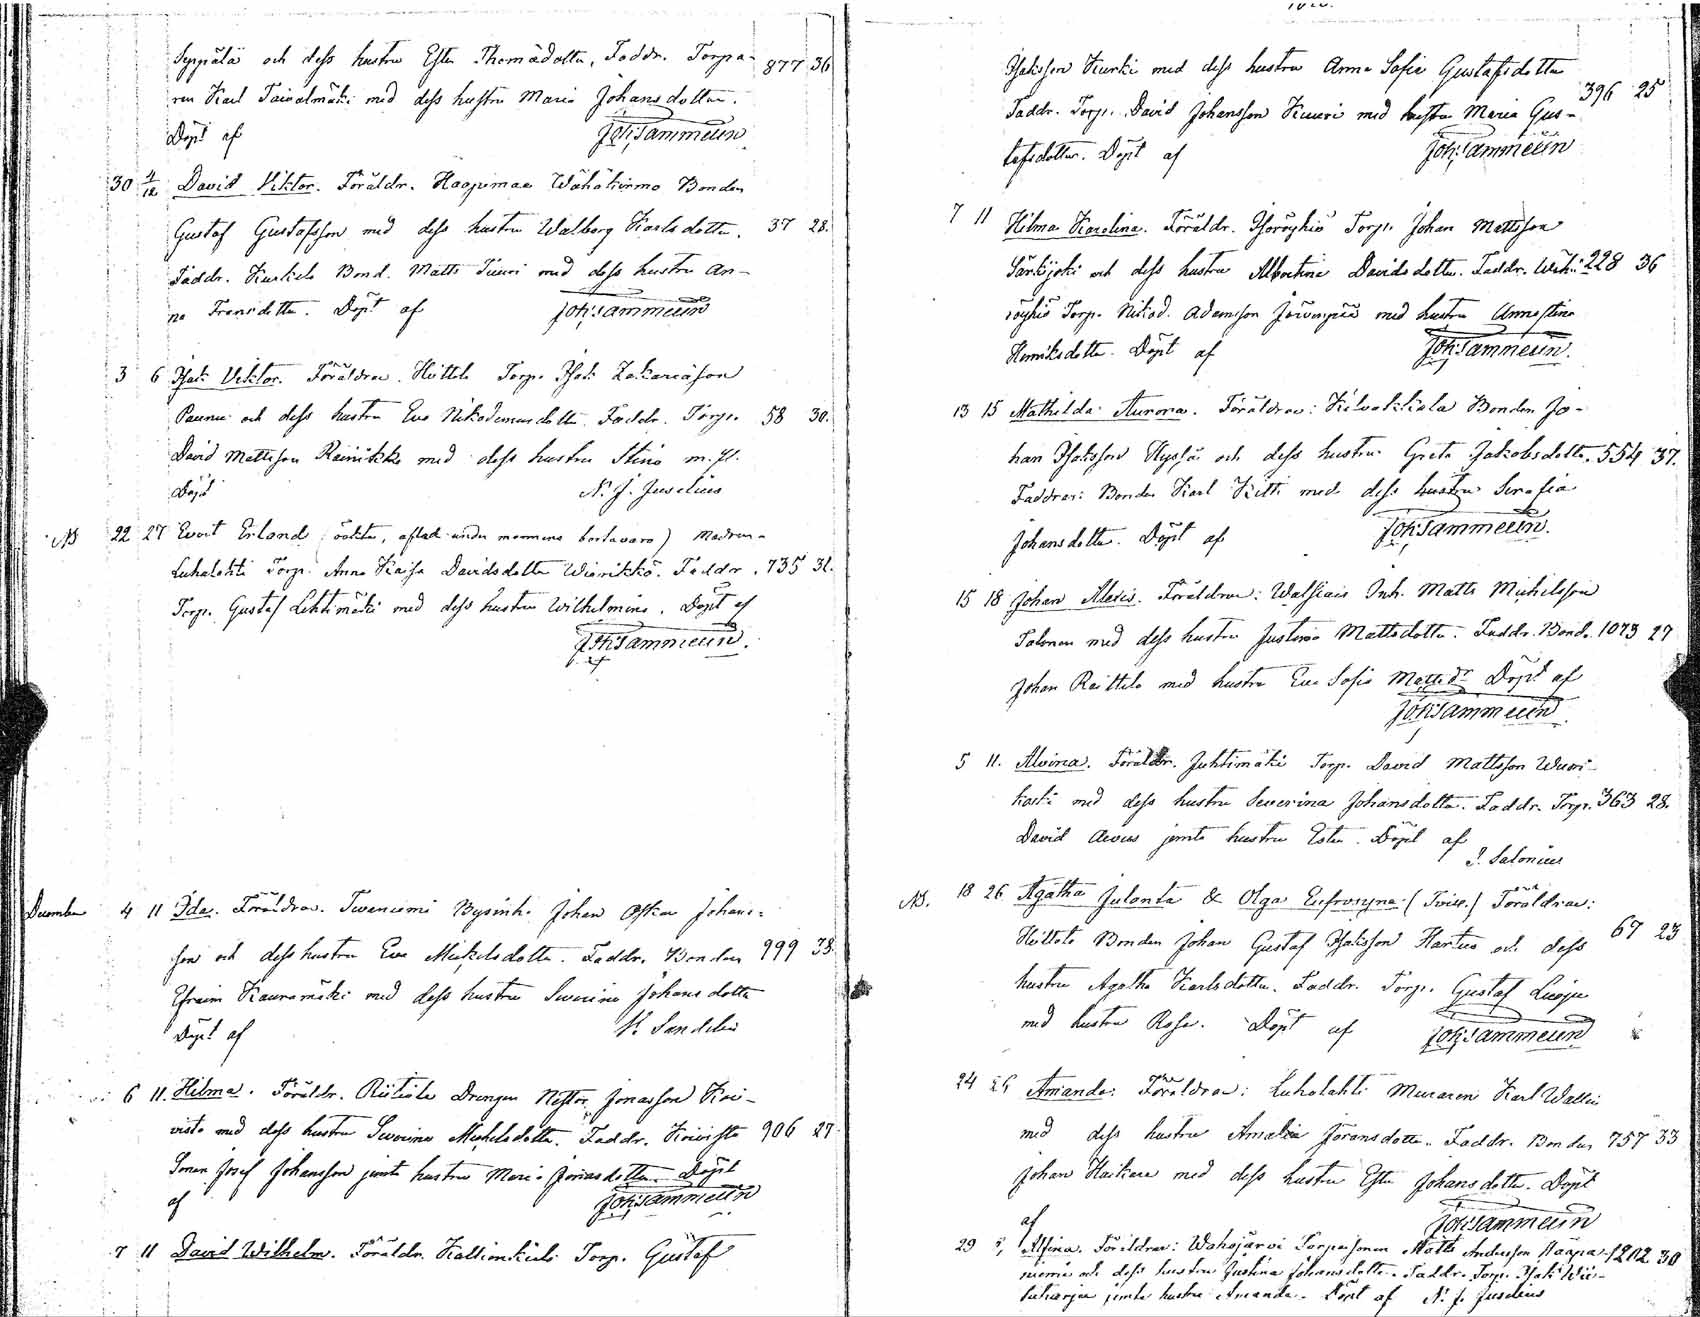 Seppälä och dess hustru Ester Thomädotter, Faddr. Torpa- 877 36
ren Karl Taivalmäki med dess hustru Maria Johansdotter.
Döpt af Joh: Tammelin
30 4/12 David Viktor. Föräldr. Haapimaa Wähäkirmo Bonden
Gustaf Gustafsson med dess hustru Walborg Karlsdotter. 37 28.
Faddr. Kurkela Bond. Matts Tiuri med dess hustru An-
na Fransdotter. Döpt af Joh: Tammelin
3 6 Isak Viktor. Föräldrar. Heittola Torp. Isak Zakariasson
Paunu och dess hustru Eva Nikodemusdotter. Faddr. Torp. 58 30.
David Mattsson Rainikka med dess hustru Stina m. fl.
Döpt N. J. Juselius
NB 22 27 Evert Erland (oäkta, aflad under mannens bortavaro) Modren
Luhalahti Torp. Anna Kaisa Davidsdotter Wierikko. Faddr. 735 31.
Torp. Gustaf Lehtimäki med dess hustru Wilhelmina. Döpt af
Joh: Tammelin.
December 4 11 Ida. Föräldrar. Tevaniemi Bysinh. Johan Oskar Johans-
son och dess hustru Eva Mickelsdotter. Faddr. Bonden 999 38.
Efraim Kauramäki med dess hustru Severina Johansdotter
Döpt af K. Sandelin
6 11. Hilma. Föräldr. Riitiala Drengen Nestor Jonasson Koi-
visto med dess hustru Severina Michelsdotter. Faddr. Koivisto 906 27
Sonen Josef Johansson jemte hustru Maria Jonasdotter. Döpt
af Joh: Tammelin
7 11 David Wilhelm. Föräldr. Kallionkieli Torp. Gustaf
Isaksson Kurki med dess hustru Anna Sofia Gustafsdotter
Faddr. Torp. David Johansson Kuuri med hustru Maria Gus- 396 25
tafsdotter. Döpt af Joh: Tammelin
7 11 Hilma Karolina. Föräldr. Isoröyhiö Torp. Johan Mattsson
Särkijoki och dess hustru Albertina Davidsdotter. Faddr. Wäh: 228 36
röyhiö Torp. Nikod. Adamsson Järvenpää med hustru Annastina
Henriksdotter. Döpt af Joh: Tammelin.
13 15 Mathilda Aurora. Föräldrar: Kilvakkala Bonden Jo-
han Isaksson Hyssä och dess hustru Greta Jakobsdotter. 554 37.
Faddrar: Bonden Karl Kitti med dess hustru Serafia
Johansdotter. Döpt af Joh: Tammelin.
15 18 Johan Alexis. Föräldrar: Watsiais Inh. Matts Michelsson
Salonen med dess hustru Justina Mattsdotter. Faddr. Bond. 1073 27
Johan Raittila med hustru Eva Sofia Mattsdr Döpt af
Joh: Tammelin.
5 11. Alvina. Föräldr. Juhtimäki Torp. David Mattsson Wuori-
koski med dess hustru Severina Johansdotter. Faddr. Torp. 363 28.
David jemte hustru Ester. Döpt af
J. Salonius
NB. 18 26 Agatha Julanta & Olga Eufrosyna (Tvill.) Föräldrar:
Heittola Bonden Johan Gustaf Isaksson Hartus och dess 67 23
hustru Agatha Karlsdotter. Faddr. Torp. Gustaf Luoju
med hustru Rosa. Döpt af Joh: Tammelin
24 26 Amanda. Föräldrar: Luhalahti Muraren Karl Wallin
med dess hustru Amalia Göransdotter. Faddr. Bonden 757 33
Johan Haikara med dess hustru Ester Johansdotter. Döpt
af Joh: Tammelin
29 Alfina. Föräldrar: Wahojärvi Torparsonen Matts Andersson Haapa- 1202 30
niemi och dess hustru Justina Johansdotter. Faddr. Torp. Isak
jemte hustru Amanda. Döpt af N. J. Juselius